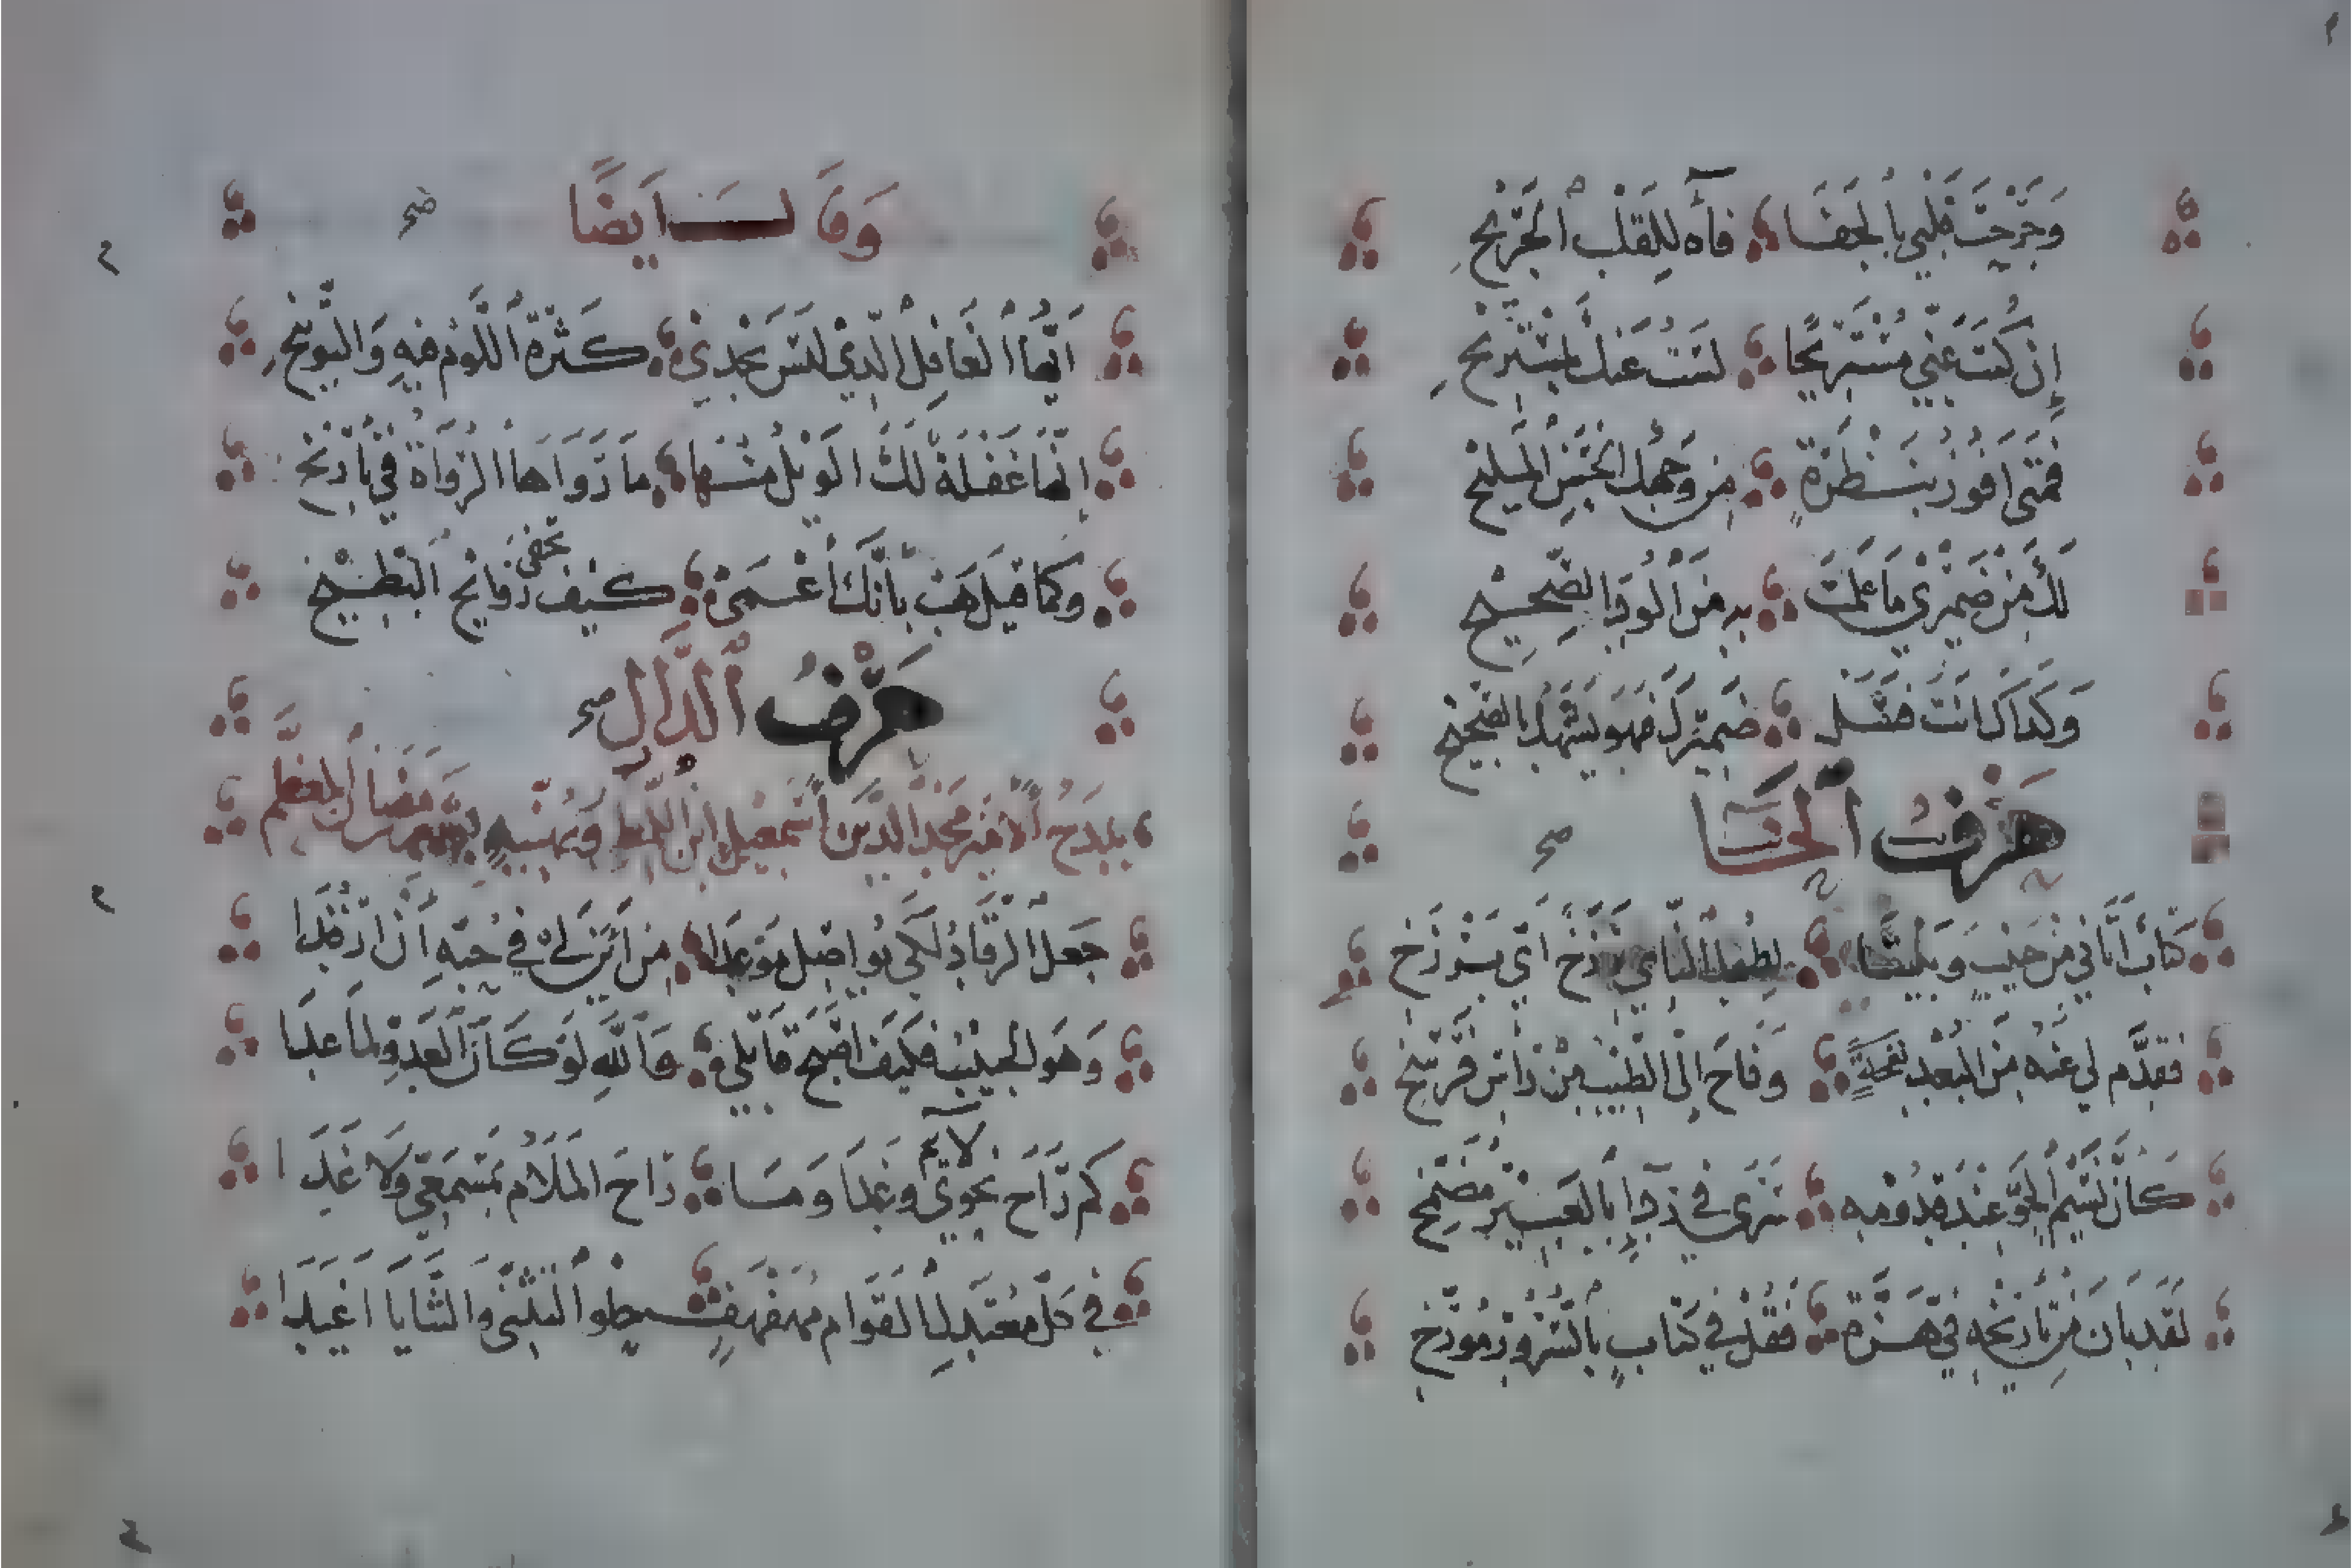 وَجَرَحْتَ قَلْبِي بِالْجَفَا فَآه لِلقَلْبِ الْجَرِيْحِ
إِن كُنتَ عَنِّي مُسْتَرِيحًا لَسْتُ عَنكَ بِمُسْتَرِيْحِ
فَمَتَى أَفُوزُ بِنَظْرَةٍ مِن وَجْهِكَ الْحَسَنِ الْمَلِيْحِ
لَكَ مِنْ ضَمِيْرِي مَا عَلِمْتَ بِهِ مِنَ الْوُدِّ الصَّحِيْحِ
وَكَذَاكَ أَنْتَ فَسَلْ ضَمِيْرَكَ فَهْوَ يَشْهَدُ بِالصَّحِيْحِ
حَرْفُ الْخَا صح
كِتَابٌ أَتَانِي مِنْ حَبِيْبٍ وَبَيْنَنَا لِطُوْلِ التَّنَائِي بَرْزَخٌ أَيُّ بَرْزَخِ
فَقَدَّمَ لِي عَنْهُ مِنَ الْبُعْدِ نَفْحَةً وَفَاحَ إِلَى الطِّيْبِ مِنْ رَأْسِ فَرْسَخِ
كَأَنَّ نَسِيْمَ الْجَوِّ عِنْدَ قُدُوْمِهِ سَرَى فِي رِدَاءٍ بِالعَبِيْرِ مُضَمَّخِ
لَقَد بَانَ مِن تَأْرِيْخِهِ فِيَّ هِزَّةٌ فَقُلْ فِي كِتَابٍ بِالسُّرُوْرِ مُؤَرَّخِ
وَقَالَ أَيضًا صح
أَيُّهَا الغَافِلُ الَّذِي لَيْسَ يُجْدِي كَثْرَةُ اللَّوْمِ فِيْهِ وَالتَّوْبِيْخِ
إِنَّهَا غَفْلَةٌ لَكَ الْوَيْلُ مِنْهَا مَا رَوَاهَا الرُّوَاةُ فِي تَأْرِيْخِ
وَكَمَا قِيْلَ هَبْ بِأَنَّكَ أَعْمَى كَيْفَ تخفى رَوَائِحُ الْبَطِّيْخِ
حَرْفُ الدَّالِ صح
يَمْدَحُ الْأَمِيْرَ مَجْدَ الدِّيْنِ إِسْمَعِيْلَ ابْنَ اللمط وَيُهَنِّيْهِ بِشَهْرِ رَمَضَانَ الْمُعَظَّمِ
جَعَلَ الرُّقَادَ لِكَي يُوَاصِلَ مَوْعِدَا مِن أَيْنَ لِي فِي حُبِّهِ أَنْ أَرْقُدَا
وَهُوَ الْحَبِيْبُ فَكَيْفَ أَصْبَحَ قَاتِلِي وَاللهِ لَوْ كَانَ الْعَدُوَّ لَمَا عَدَا
كَم رَاحَ نَحْوِي لَائِمٌ وَغَدَا وَمَا رَاحَ الْمَلَامُ بِمَسْمَعِي وَلَا غَدَا
فِي كُلِّ مُعْتَدِلِ القَوَامِ مُهَفْهَفٍ حُلْوِ التَّثَنِّي وَالثَّنَايَا أَغْيَدَا